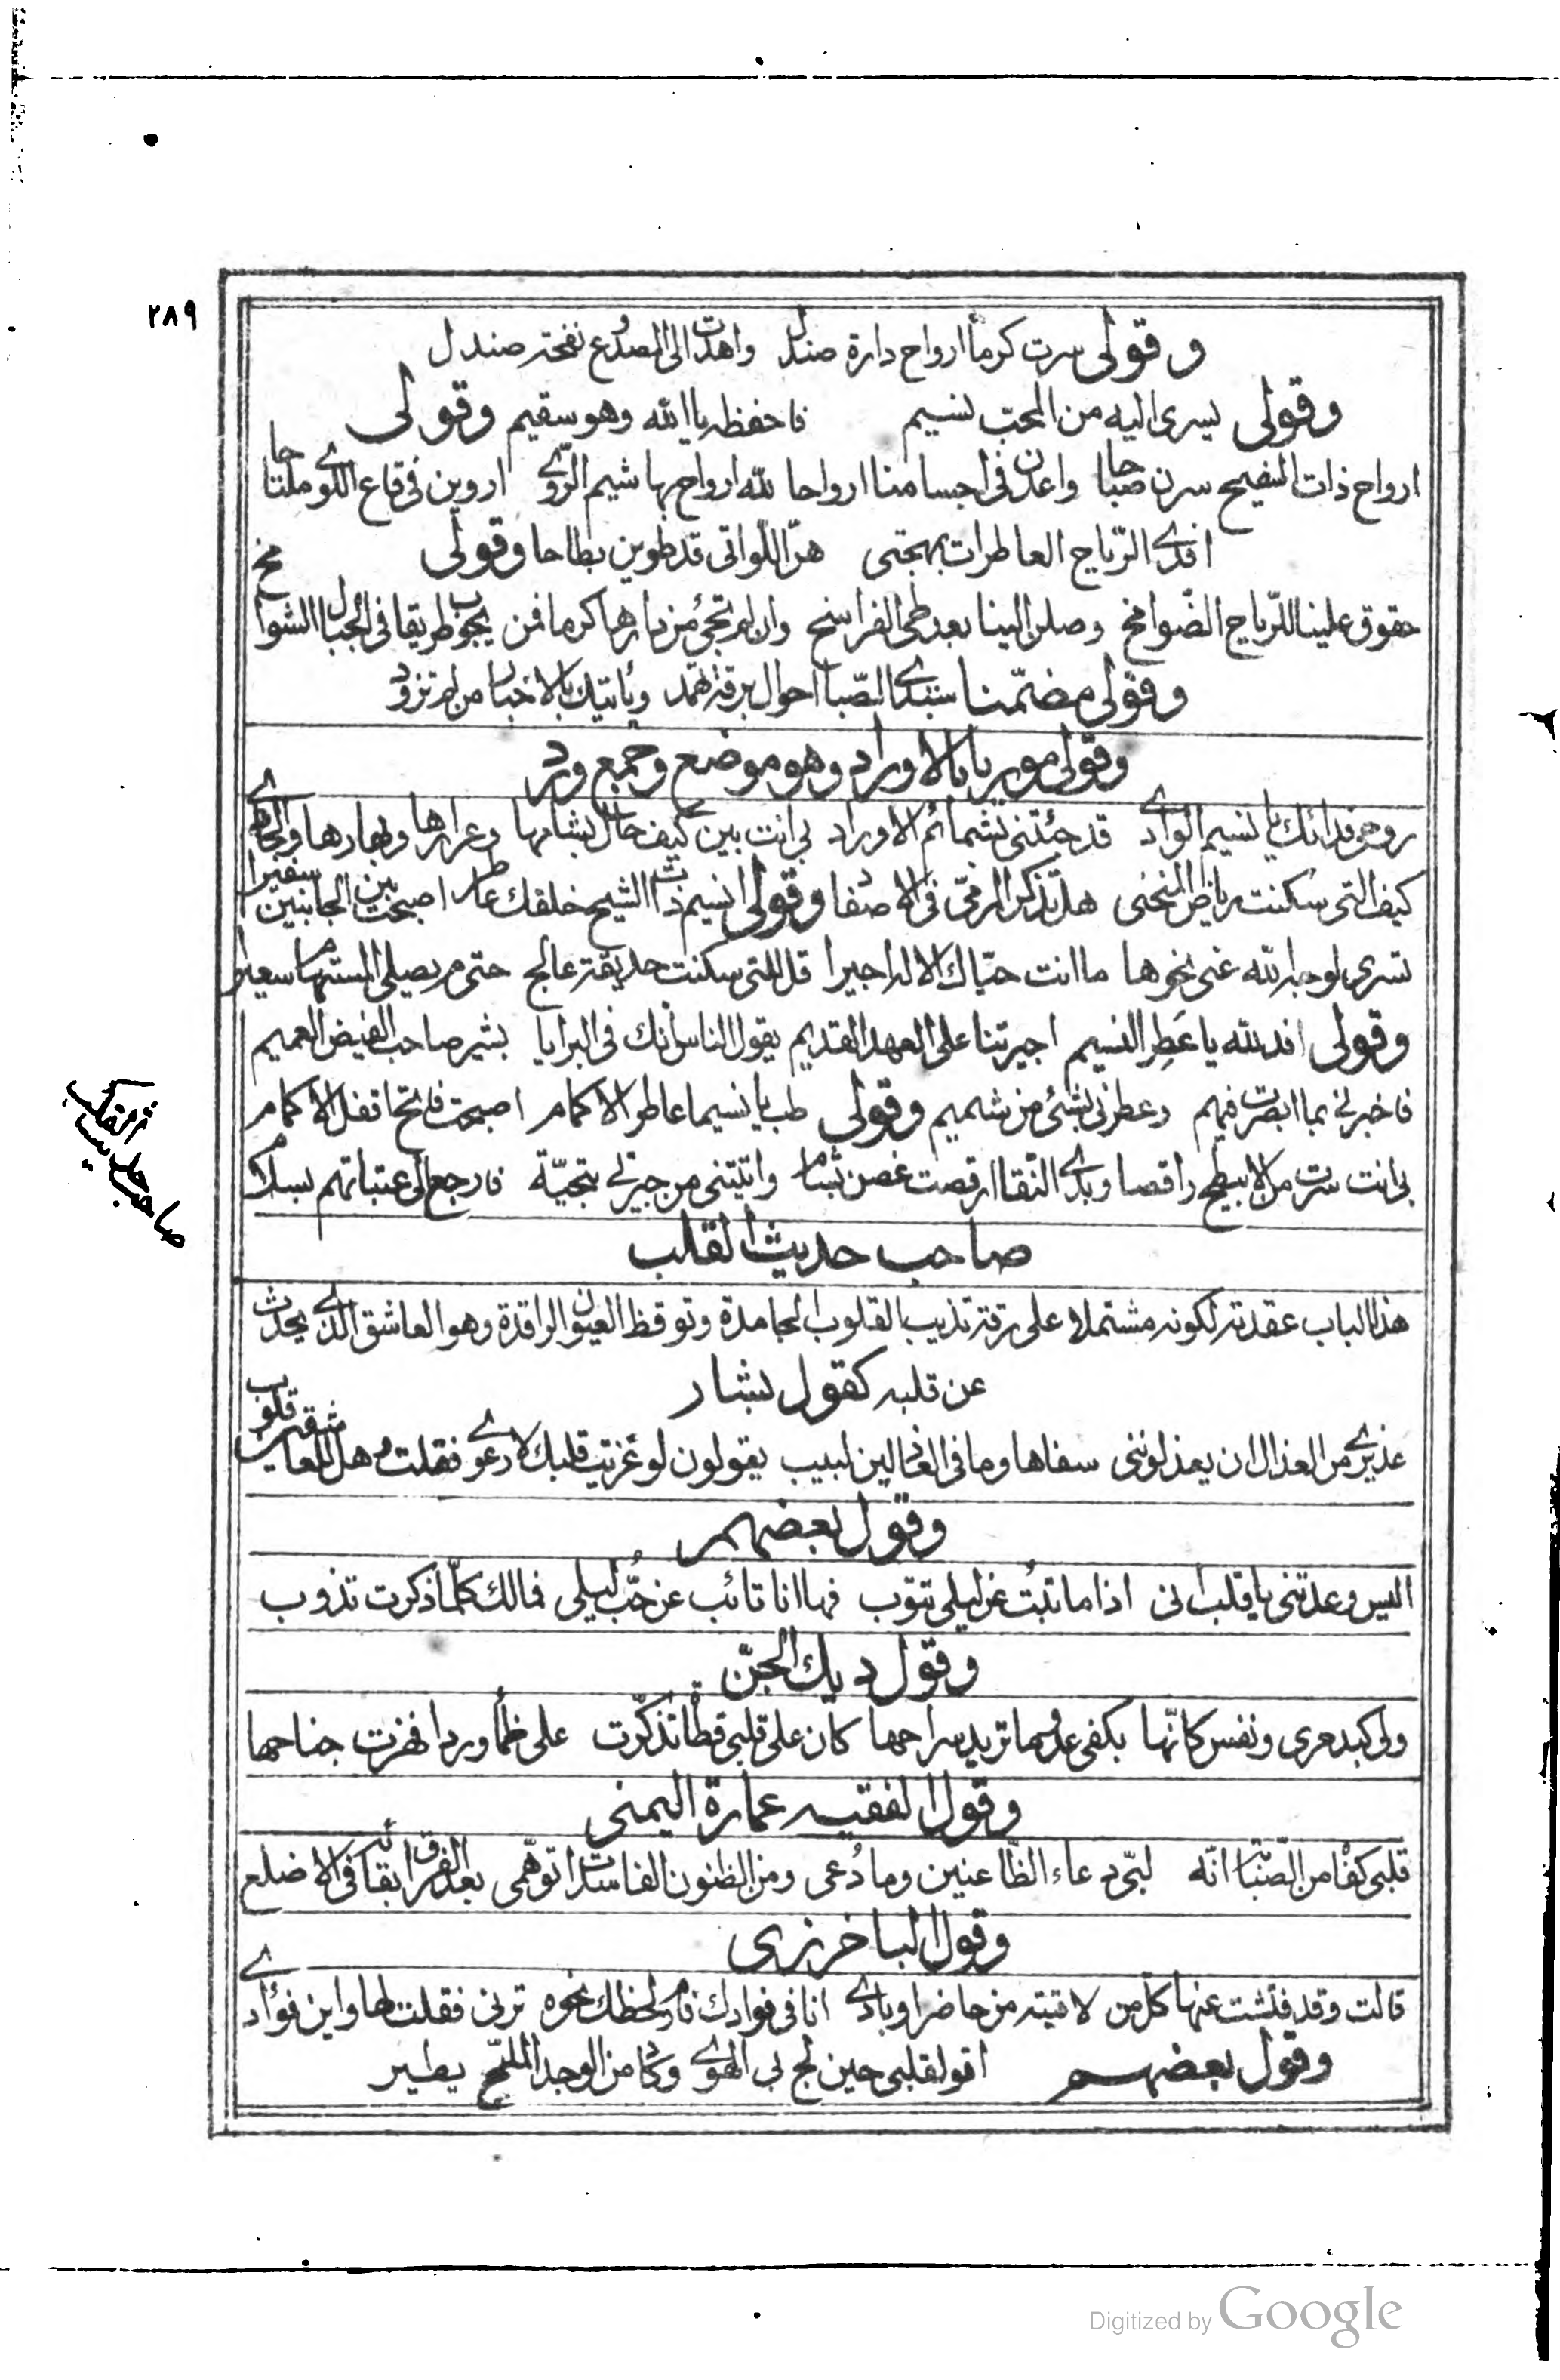 ٢٨٩
وقولى سرت كرماً ارواح دارة صندل واهدت الى المصدوع نفحة صندل
وقولى يسرى اليه من المحب نسيم فاحفظه يا الله وهو سقيم وقولى
ارواح ذات الشيح سرن صباحا واعدن فى اجسامنا ارواحا لله ارواح بها شيم الروى اروين فى قاع اللوى ملتاحا
افدى الرياح العاطرات بمهجتى هن اللواتى قد طوين بطاحا وقولى
حقوق علينا للرياح الضوامخ وصلن الينا بعد طى الفراسخ وان لم تجئ من دارها كرما فمن يجوب طريقا فى الجبال الشوامخ
وقولى مضمّنا ستبدى الصبا احوال برقة ثهمد ويأتيك بالاخبار من لم تزود
وقولى موريا بالاوراد وهو موضع وجمع ورد
روحى فدائك يا نسيم الوادى قد جئتنى بشمائم الاوراد بى انت بين كيف حال بشامها وعرارها وبهارها والجادى
كيف التى سكنت رياض المنحنى هل تذكر المرمىّ فى الاصفاد وقولى انسيم ذات الشيح خلقك عاطر اصبحت بين الجانبين سفيرا
تسرى لوجه الله عنى نحوها ما انت حياك الاله اجيرا قل للتى سكنت حديقة عالج حتى م يصلى المستهام سعيرا
وقولى افد لله يا عَطِر النسيم اجيرتنا على العهد القديم يقول الناس انك فى البرايا بشير صاحب الفيض العميم
فاخبرنى بما ابصرت فيهم وعطرنى بشئ من شميم وقولى طب يا نسيما عاطر الاكمام اصبحت فاتح اقفل الاكمام
بى انت سرت من الابيطح راقصا وبدى النقا ارقصت غصن بشام واتيتنى من جيرتى بتحيّة فارجع الى عتباتهم بسلام
صاحب حديث القلب
صاحب حديث القلب
هذا الباب عقدته لكونه مشتملا على رقة تذيب القلوب الجامدة وتوقظ العيون الراقدة وهو العاشق الذى يحدث
عن قلبه كقول بشار
عذيرى من العذال ان يعذلوننى سفاها وما فى العاذلين لبيب يقولون لو عزيت قلبك لارعوى فقلت وهل للعاشقين قلوب
وقول بعضهم
اليس وعدتنى يا قلب انى اذا ما تبتُ عن ليلى تتوب فها انا تائب عن حُبّ ليلى فمالك كلما ذكرت تذوب
وقول ديك الجنّ
ولى كبد حرى ونفس كانّها بكفى عدو ما تريد سراحها كان على قلبى قطاة تذكّرت على ظمأ وردا فهزت جناحها
وقول الفقيه عمارة اليمنى
قلبى كفا من الصّبابة انّه لبّى دعاء الظّاعنين وما دُعى ومن الظنون الفاسدات توهّمى بعد الفراق بقائه فى الاضلع
وقول الباخرزى
قالت وقد فتّشت عنها كل من لاقيته من حاضر او بادى انا فى فوادك فارم لحظك نحوه ترنى فقلت لها واين فؤادى
وقول بعضهم اقول لقلبى حين لج بى الهوى وكاد من الوجد الملحّ يطير
Digitized by Google